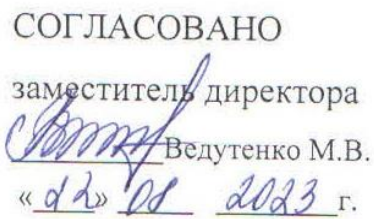 СОГЛАСОВАНО
заместитель директора
Ведутенко М.В.
«22» 08 2023 г.